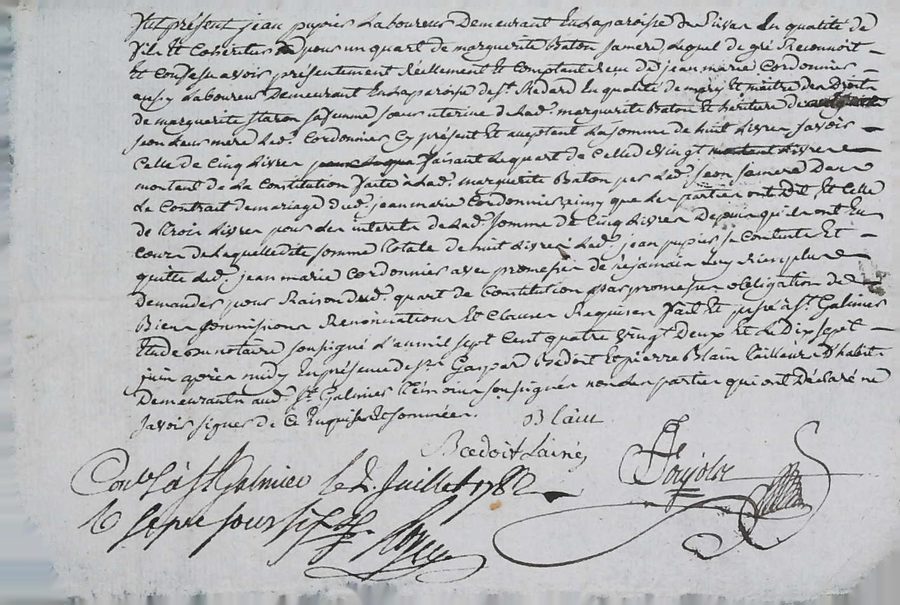 fut présent jean pupier Laboureur Demeurant En La paroisse de En qualité de
fils Et Coheritier pour un quart de marguerite Baton sa mere Lequel de gré Reconnoit
Et Confesse avoir présentement Réellement Et Comptant Receu De jean marie Cordonnier
aussy Laboureur Demeurant En La paroisse de st. Medard En qualité de mary Et maitre des Droits
de marguerite sa femme soeur uterine de Lad. marguerite Baton Et héritiere de
jean Leur mere Led. Cordonnier Cy présent Et aceptant La somme de huit Livres savoir
Celle de Cinq Livres faisant Le quart de Celle de vingt Livres
montant de La Constitution faite à Lad. marguerite Baton par Lad. jean sa mere Dans
Le Contrat de mariage dud. jean marie Cordonnier ainsy que Les parties ont dit, Et Celle
de trois Livres pour Les interets de Lad. somme de Cinq Livres Depuis qu'ils ont Eu
Cours de Laquelle dite somme totale de huit Livres Led. jean pupier se Contente Et
quitte Led. jean marie Cordonnier avec promesse de ne jamais Luy Rien plus
Demander pour Raison dud. quart de Constitution par promesse obligation de
Biens soumissions Renonciations Et Clauses Requises fait Et passé à st. Galmier
Etude du notaire soussigné L'an mil sept Cent quatre vingt Deux Et Le Dix sept
juin après midy En présence de sr. Gaspard Bedoit Et pierre Blain tailleur D'habit
Demeurants aud. st. Galmier témoins soussignés non Les parties qui ont Déclaré ne
savoir signer de Ce Enquises Et sommées.
Blain
Bedoit Lainé
Conlé à st Galmier le 2. Juillet 1782